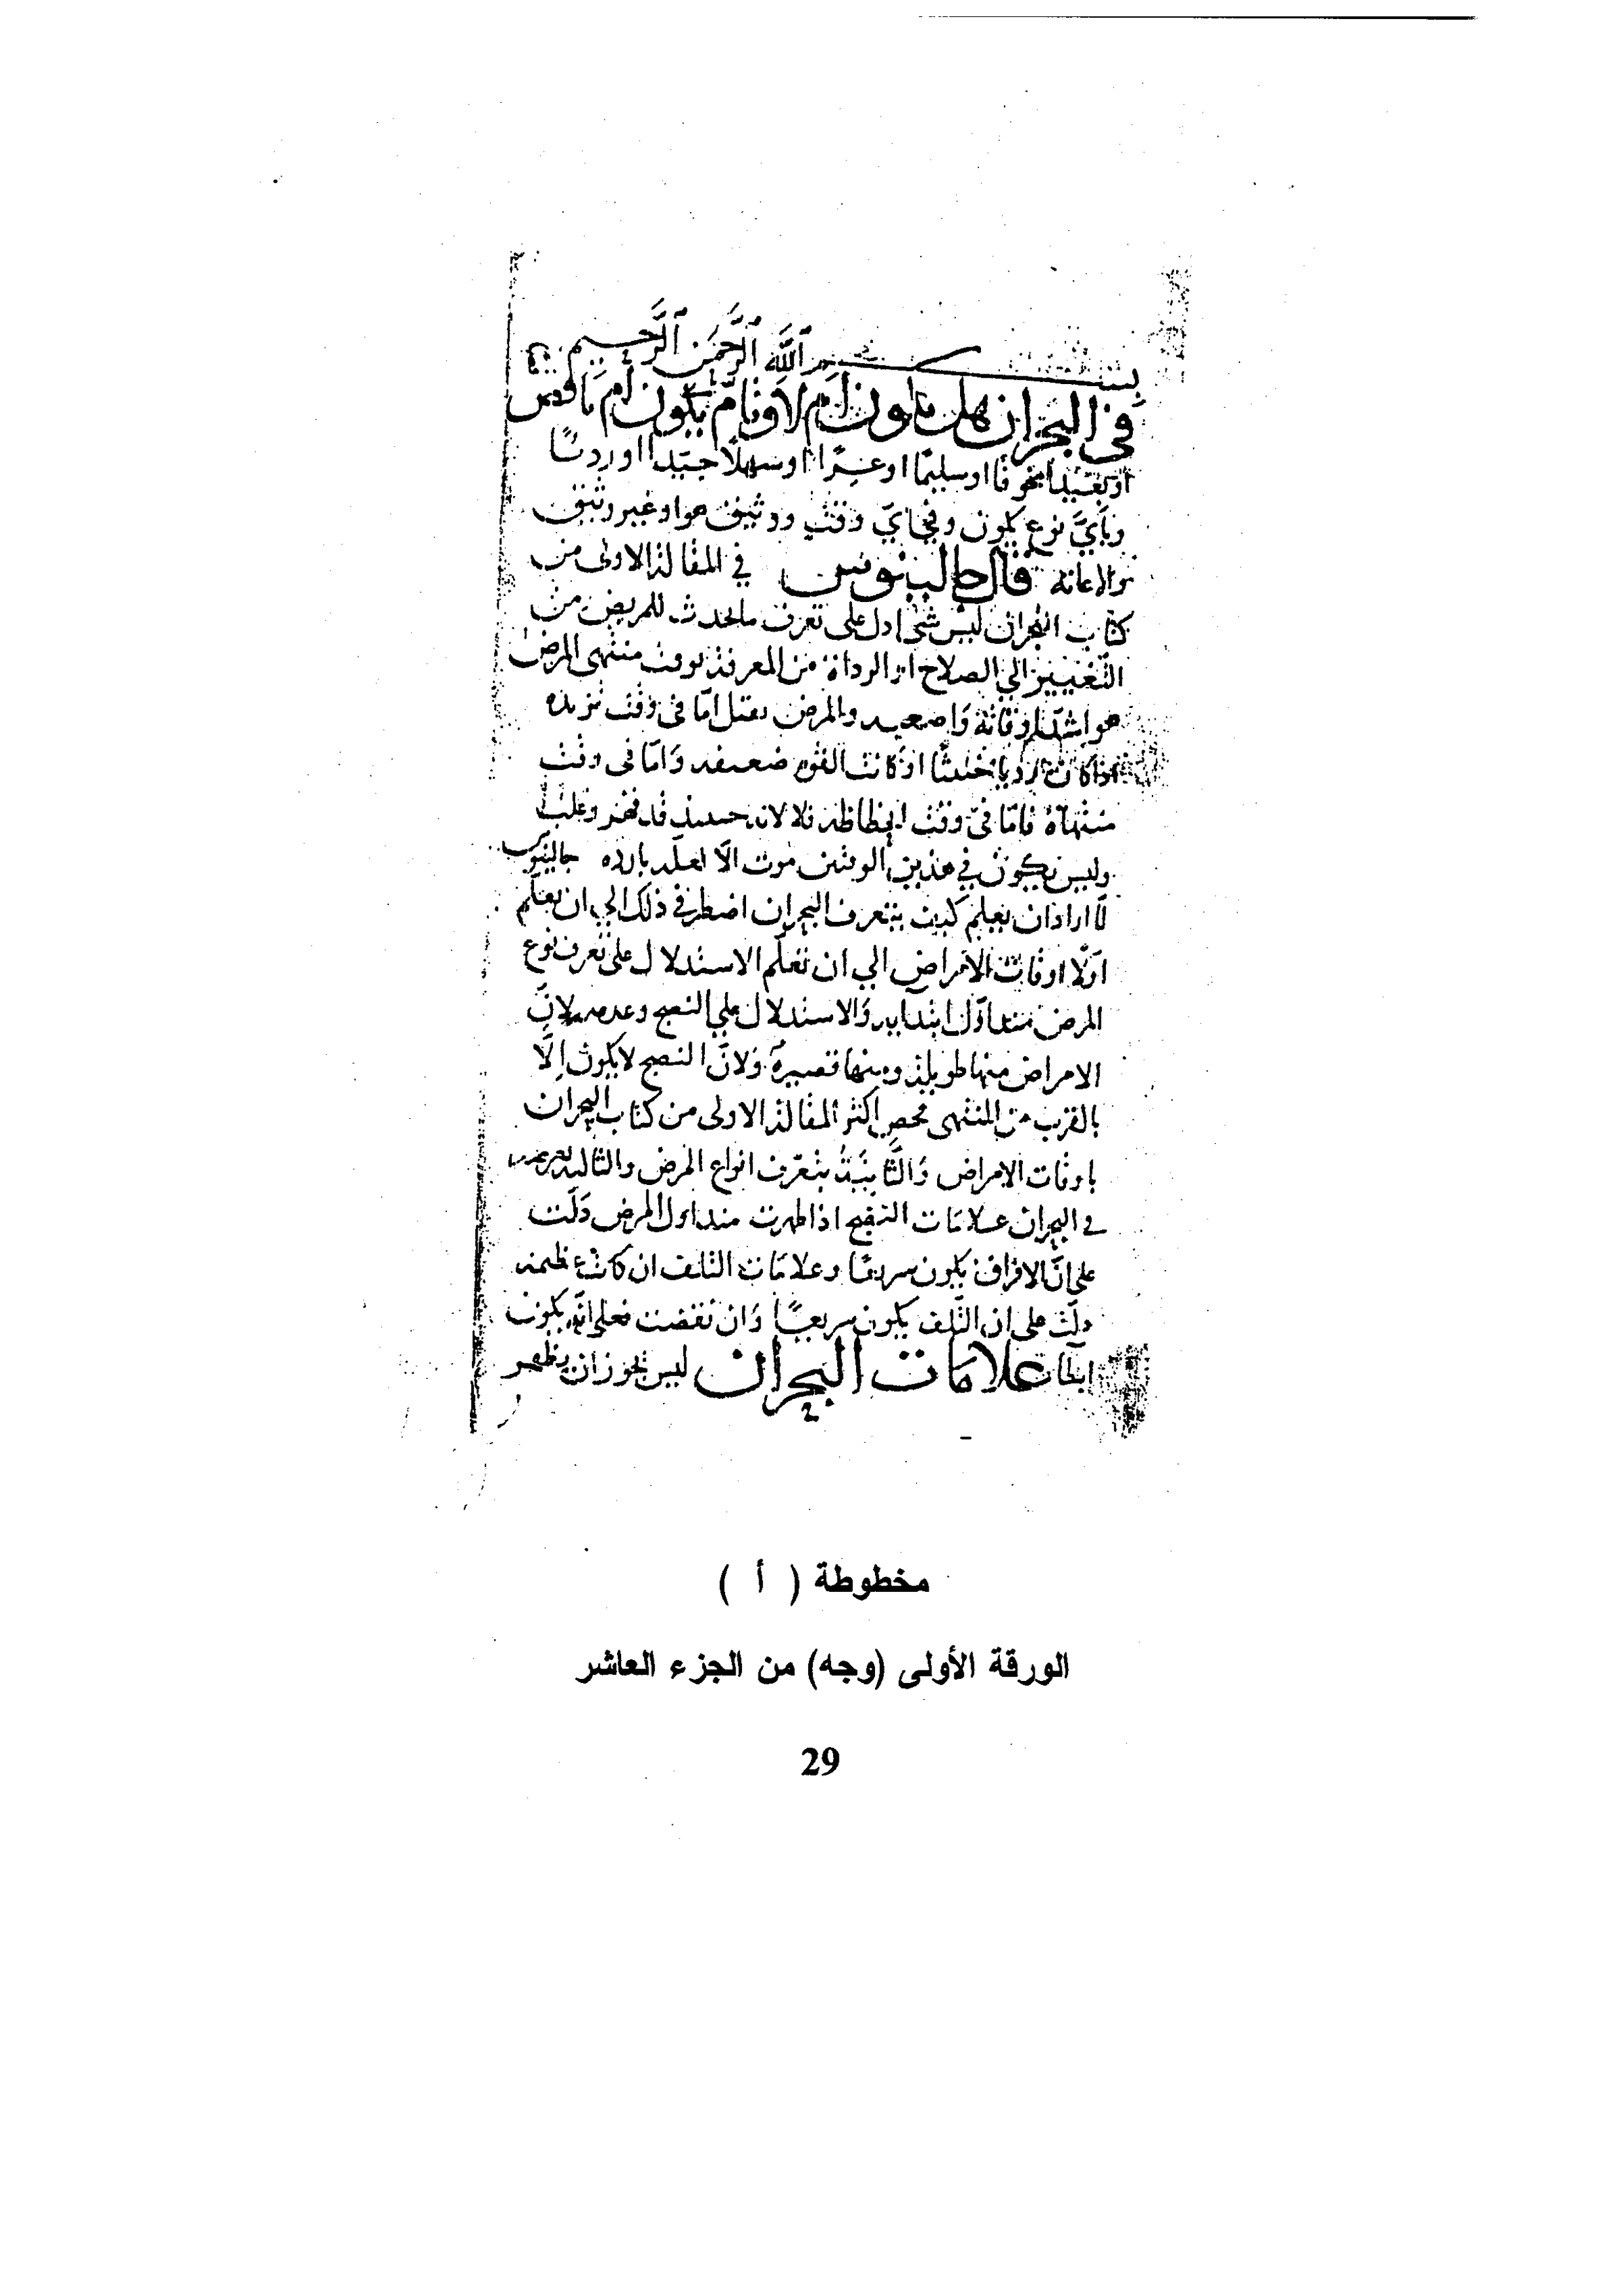 بسم ٱلله ٱلرَّحمٰن ٱلرَّحيم
في البحران هل يكون ام لا وتامّ يكون ام ناقص
او بعيدا مخوفا او سليمًا او عسرًا او سهلًا جيّدا او رديًا
وبأيّ نوع يكون وفي أيّ وقت ووثيق هو او غير وثيق
والاعانة قال جالينوس في المقالة الاولى من
كتاب البحران ليس شي ادل على تعرف ما يحدث للمريض من
التّغيير الي الصلاح او الرداة من المعرفة بوقت منتهى المرض
هو اشد اوقاته واصعبه والمرض يقتل امّا في وقت تزيده
اذا كان رديا خبيثا او كانت القوة ضعيفه وَامّا في وقت
منتهاة فامّا في وقت انحطاطه فلا لانه حينيذ قد قهر وغلب
وليس يكون في هذين الوقتين موت الّا لعلة بارده جالينوس
لمّا اراد ان يعلم كيف يتعرف البحران اضطر في ذلك الي ان يعلّم
اوّلا اوقات الأمراض الي ان تعلّم الاستدلال على تعرف نوع
المرض منذ اوّل ابتدايه وَالاستدلال علي النضج وعدمه لانّ
الامراض منها طويلة ومنها قصيرة وَلانّ النضج لا يكون اِلّا
بالقرب من المنتهى اكثر المقالة الاولى من كتاب البحران
باوقات الامراض وَالثّانِيَةُ بتعرّف انواع المرض والثالثه
في البحران علامَات النضج اذا ظهرت منذ اول المرض دَلّت
على انّ الافراق يكون سريعًا وعلامَات التلف ان كانت عظيمه
دلّت على ان التّلف يكون سريعًا وَان نقصت فعلى انّه يكون
ابطا علامَات البحران ليس يجوز ان يظهر
مخطوطة ( أ )
الورقة الأولى (وجه) من الجزء العاشر
29